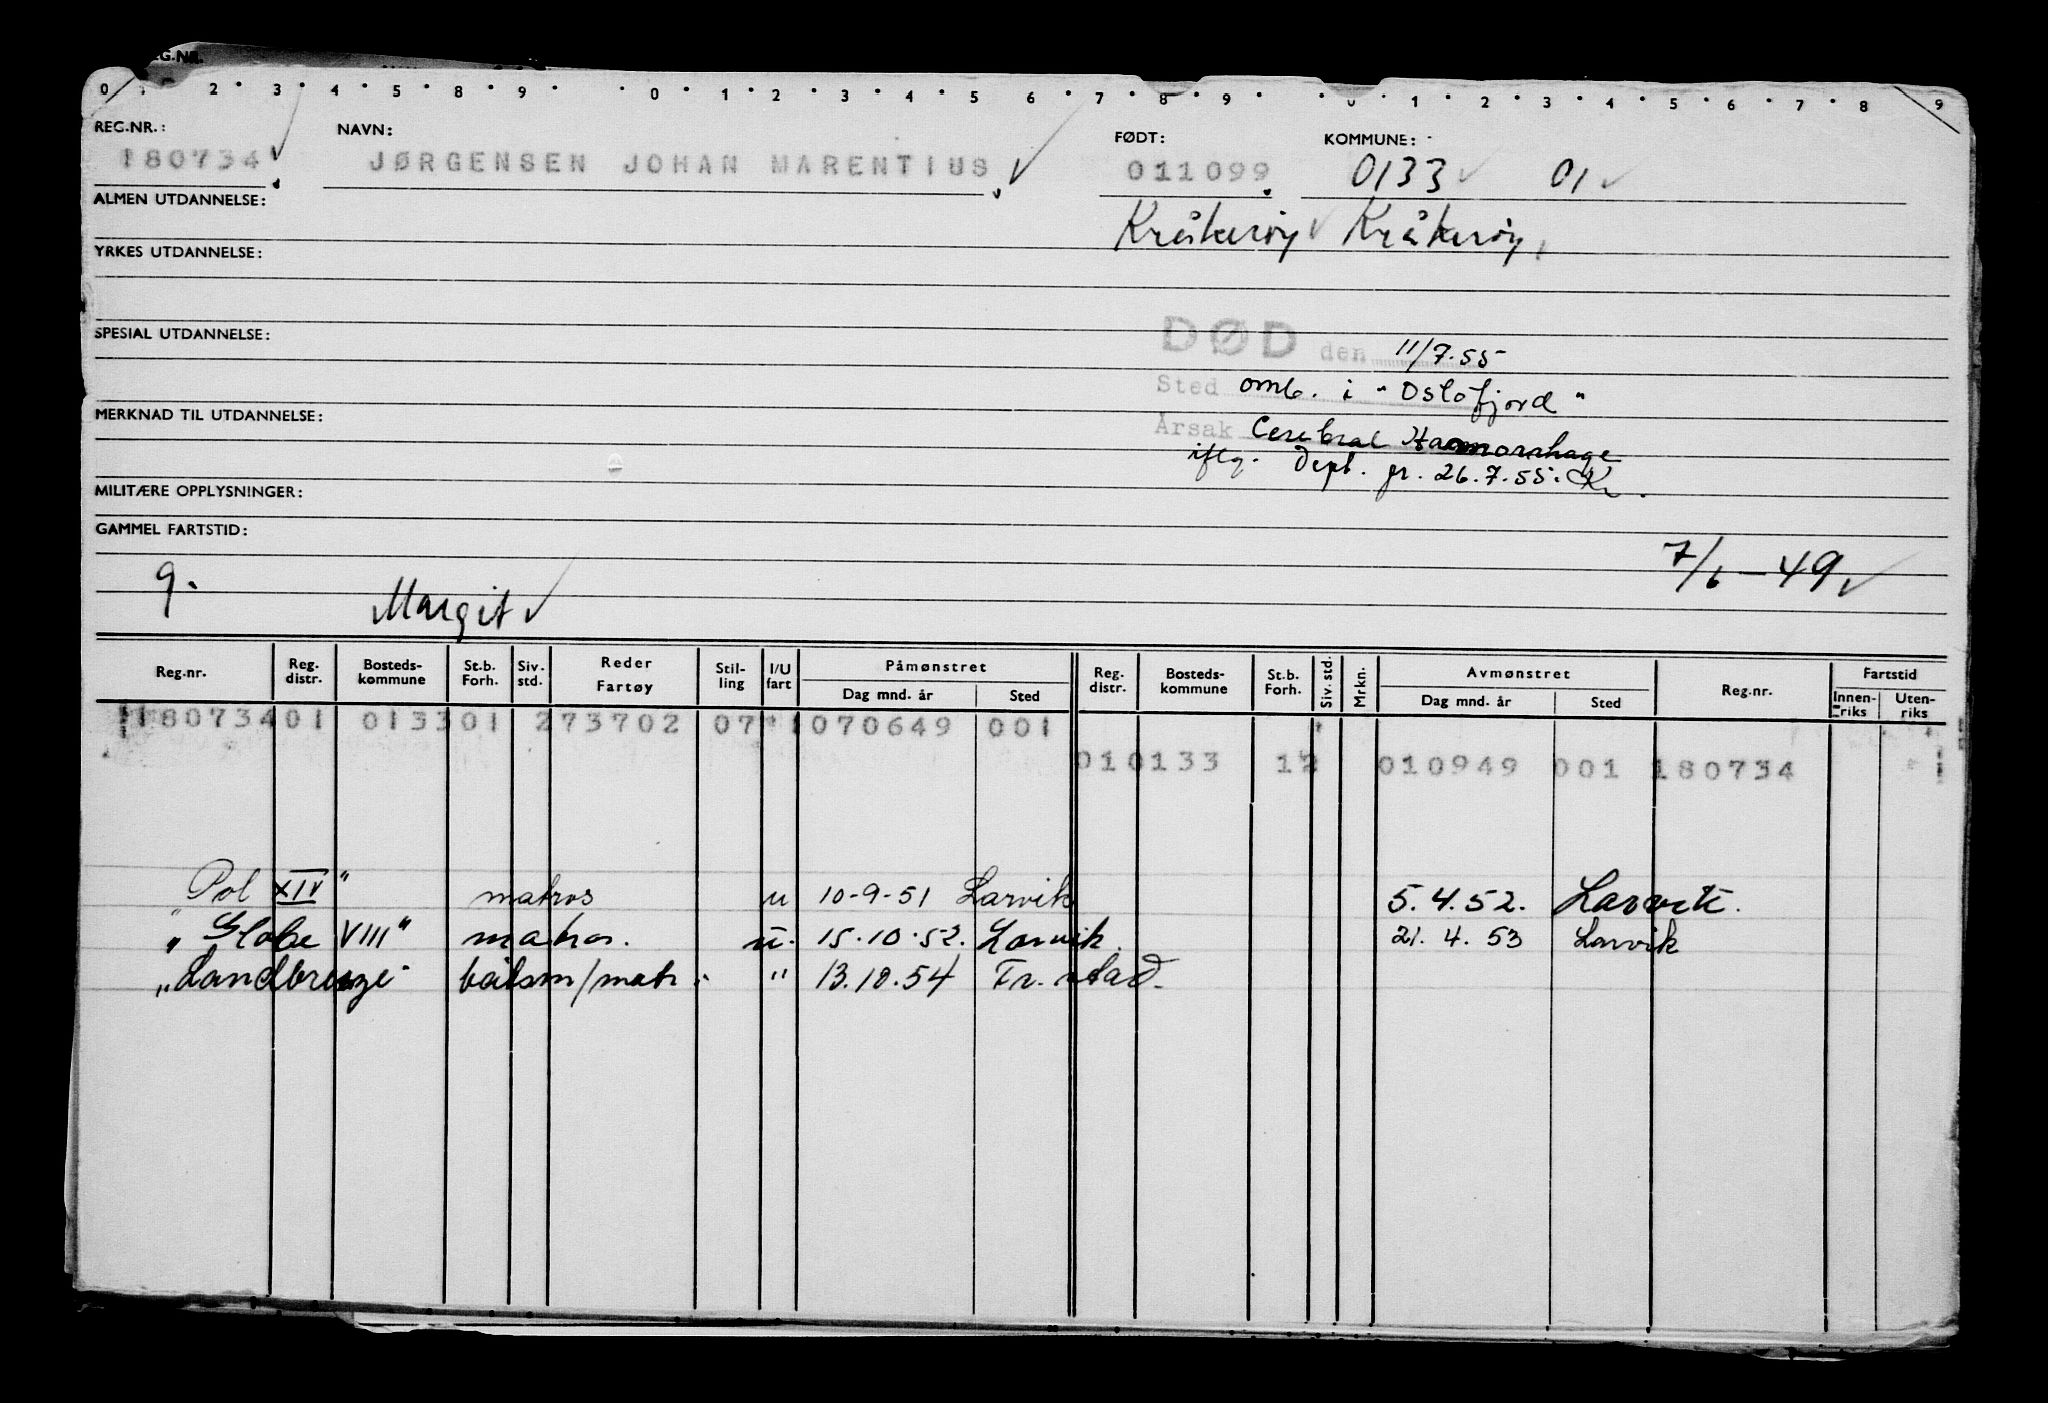 EG.NR.
0 1 2 3 4 5 8 9 0 1 2 3 4 5 6 7 8 9 0 1 2 3 4 5 6 7 8 9
REG.NR.: NAVN: FØDT: KOMMUNE:
180734 JØRGENSEN JOHAN MARENTIUS 011099 0133 01
ALMEN UTDANNELSE: Kråkerøy Kråkerøy
YRKES UTDANNELSE:
SPESIAL UTDANNELSE: DØD den 11/7.55
Sted omb. i "Oslofjord"
MERKNAD TIL UTDANNELSE: Årsak Cerebral Haemorrhage
iflg. Dept. pr. 26.7.55.
MILITÆRE OPPLYSNINGER:
GAMMEL FARTSTID:
7/6-49
9. Margit
Reg.nr. Reg. distr. Bosteds- kommune St.b. Forh. Siv. std. Reder Fartøy Stil- ling I/U fart Påmønstret Dag mnd. år Sted Reg. distr. Bosteds- kommune St.b. Forh. Siv. std. Mrkn. Avmønstret Dag mnd. år Sted Reg.nr. Fartstid Innen- riks Uten- riks
18073401 013301 273702 07 070649 001
010133 12 010949 001 180734
"Pol XIV" matros u 10-9-51 Larvik 5.4.52. Larvik.
"Globe VIII" matros. u. 15.10.52. Larvik. 21.4.53 Larvik
"Landbreeze" båtsm/matr. " 13.10.54 Fr.stad.